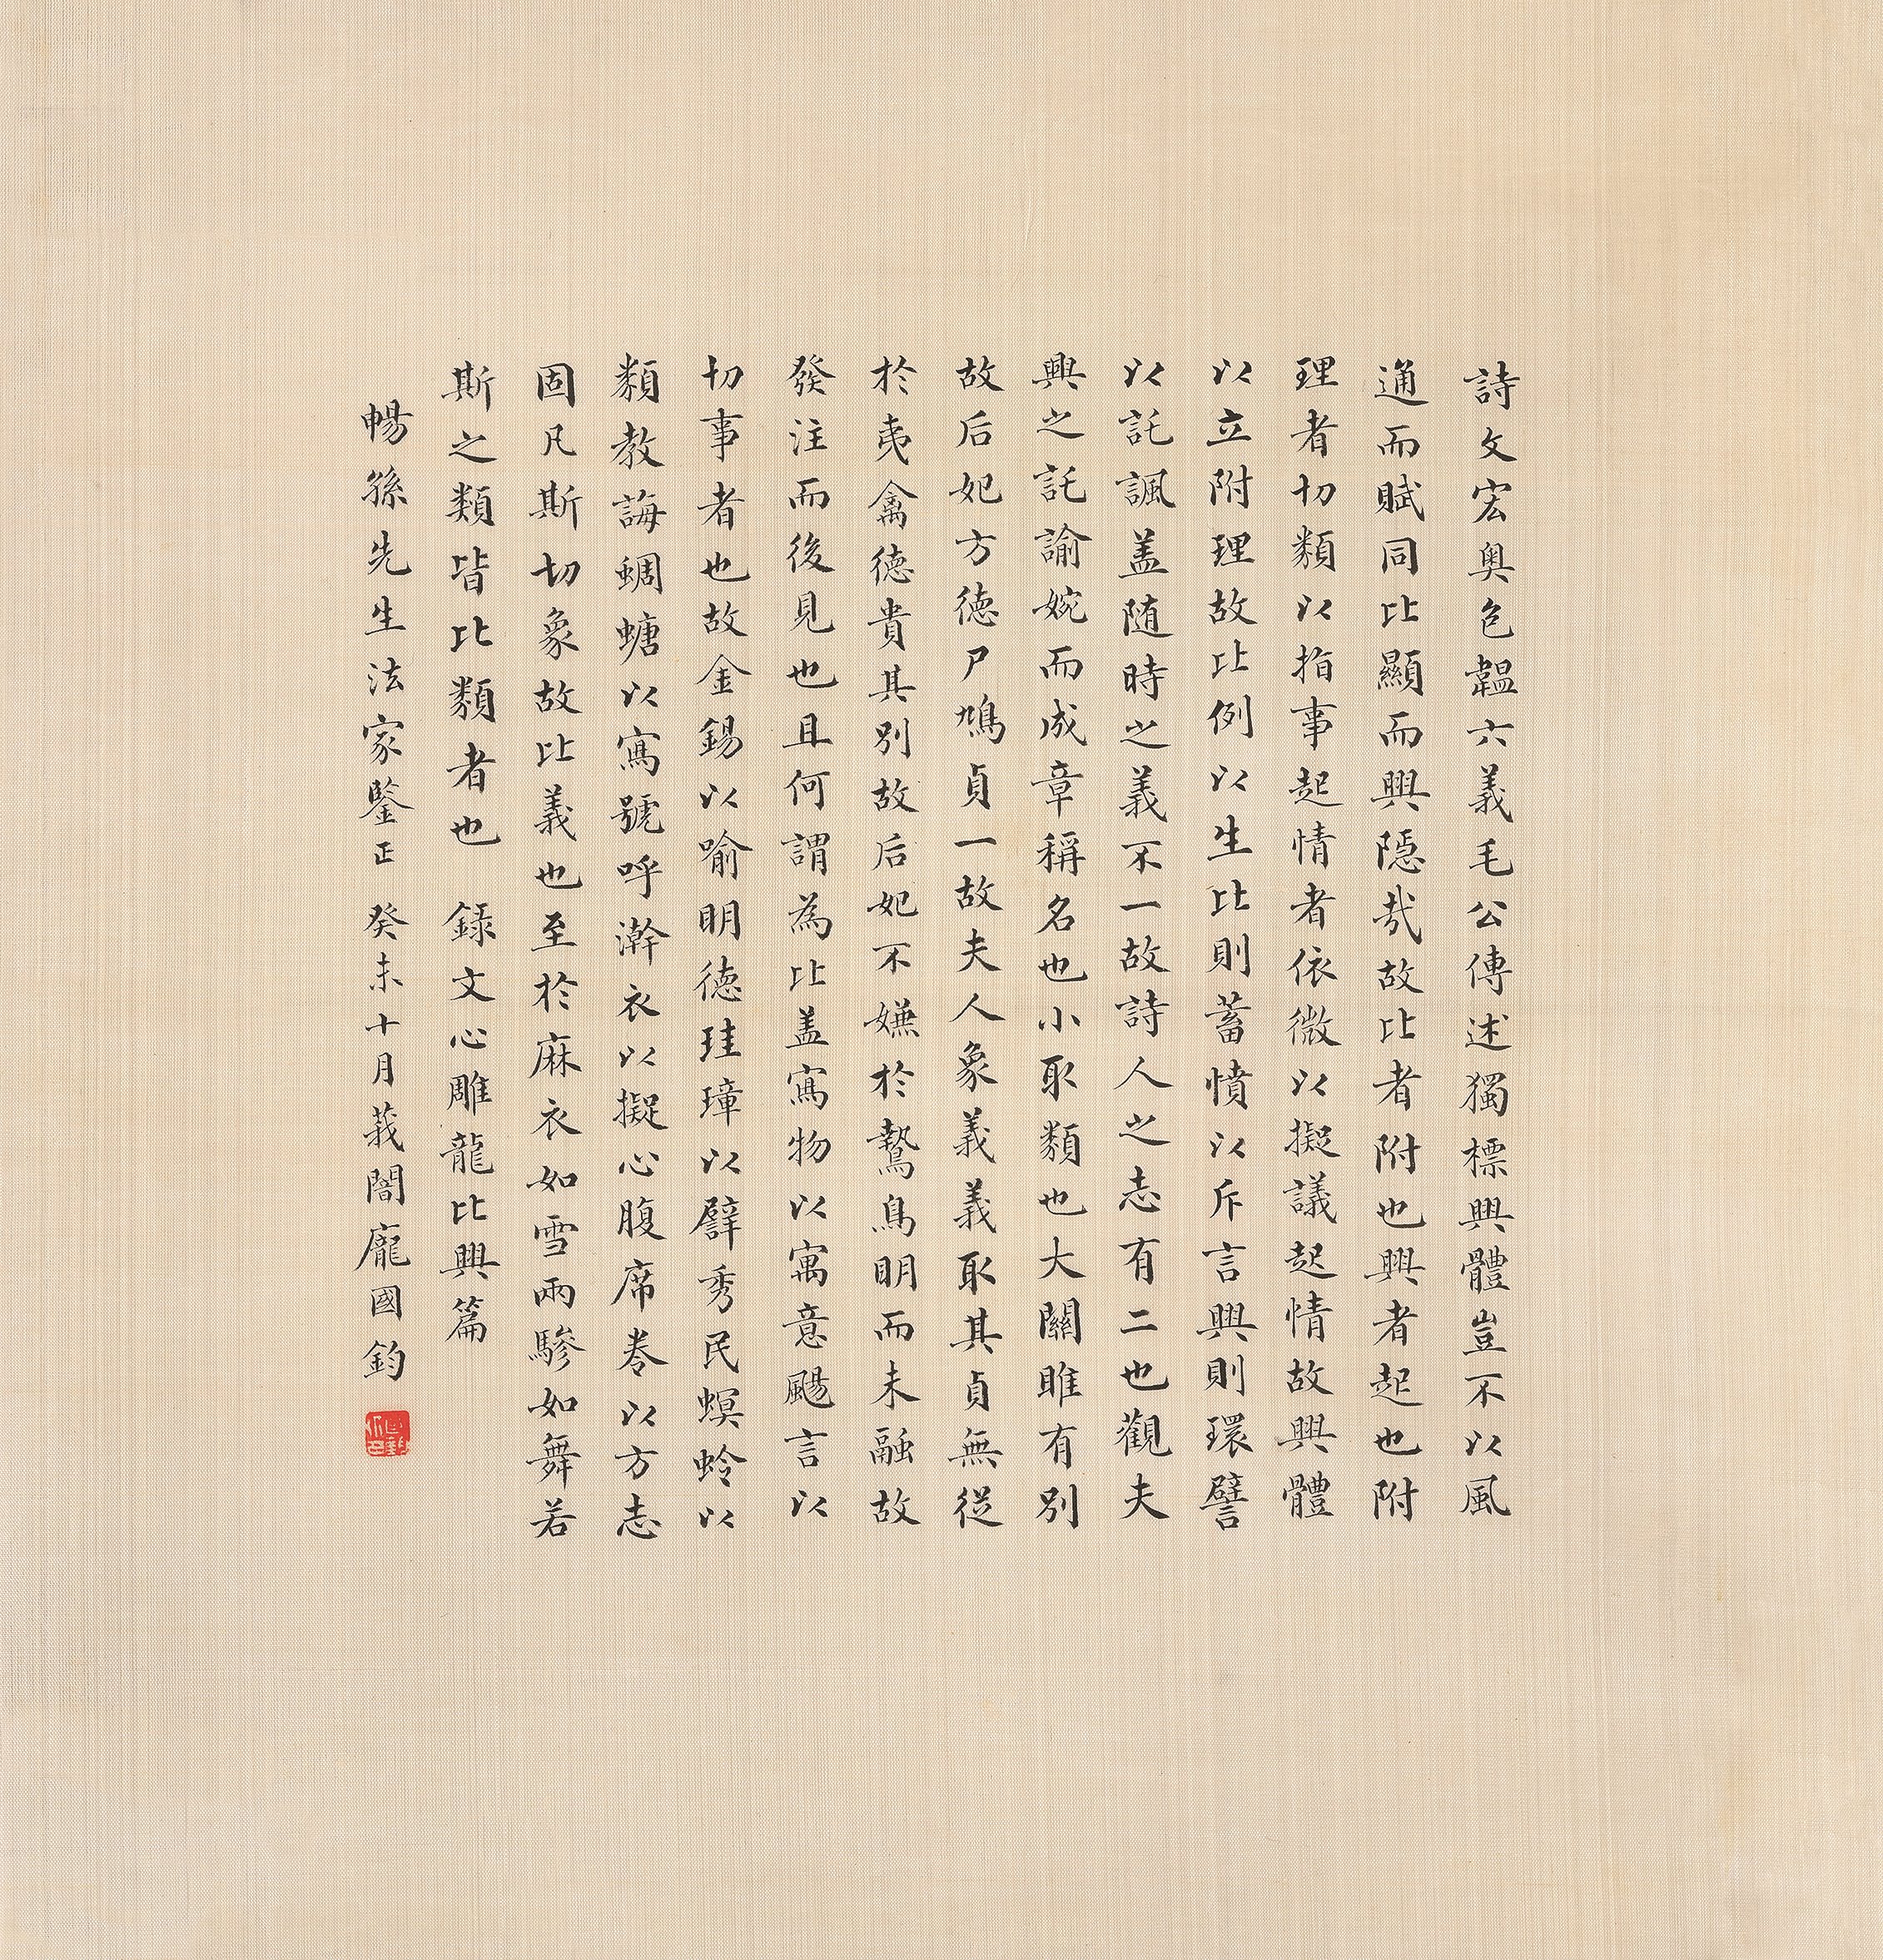 詩文宏奥色韞六義毛公傳述獨標興體豈不以風
通而賦同比顯而興隱哉故比者附也興者起也附
理者切類以指事起情者依微以擬議起情故興體
以立附理故比例以生比則蓄憤以斥言興則環譬
以託諷盖随時之義不一故詩人之志有二也觀夫
興之託諭婉而成章稱名也小取類也大關雎有別
故后妃方德尸鳩貞一故夫人象義義取其貞無從
於夷禽德貴其別故后妃不嫌於鷙鳥明而未融故
發注而後見也且何謂為比盖寫物以寓意颺言以
切事者也故金錫以喻明德珪璋以譬秀民螟蛉以
類教誨蜩螗以寫號呼澣衣以擬心腹席卷以方志
固凡斯切象故比義也至於麻衣如雪兩驂如舞若
斯之類皆比類者也 錄文心雕龍比興篇
暢孫先生法家鑒正 癸未十月莪闇龐國鈞